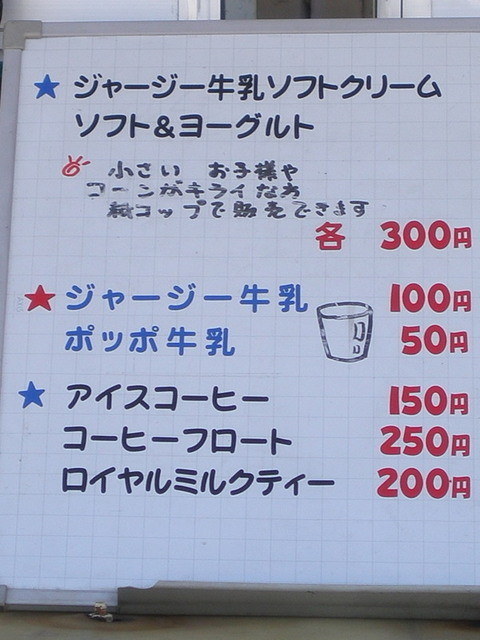 ★ ジャージー牛乳ソフトクリーム
ソフト&ヨーグルト
小さい お子様や
コーンがキライな方
紙コップで販売できます
各 300円
★ ジャージー牛乳 100円
ポッポ牛乳 50円
★ アイスコーヒー 150円
コーヒーフロート 250円
ロイヤルミルクティー 200円